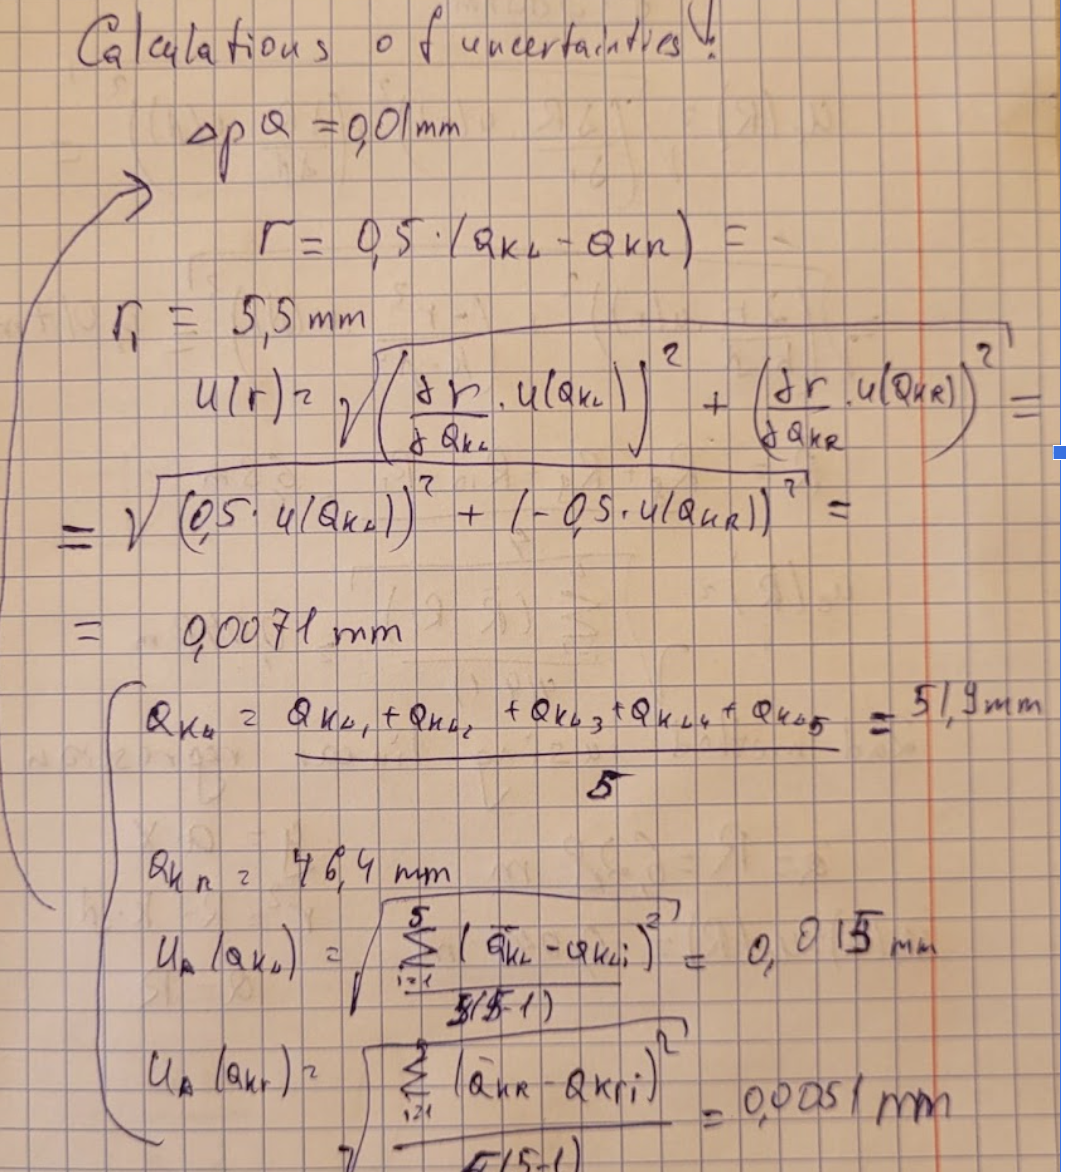 Calculations of uncertainties!
Δp a = 0,01 mm
r = 0,5 · (a_KL - a_KR) =
r₁ = 5,5 mm
u(r) = √((∂r/∂a_KL · u(a_KL))² + (∂r/∂a_KR · u(a_KR))²) =
= √((0,5 · u(a_KL))² + (-0,5 · u(a_KR))²) =
= 0,0071 mm
a_KL = (a_KL1 + a_KL2 + a_KL3 + a_KL4 + a_KL5) / 5 = 51,9 mm
a_KR = 46,4 mm
u_A (a_KL) = √(Σ_{i=1}^{5} (ā_KL - a_KLi)² / 5(5-1)) = 0,015 mm
u_A (a_Kr) = √(Σ_{i=1}^{5} (ā_KR - a_Kri)² / 5(5-1)) = 0,0051 mm